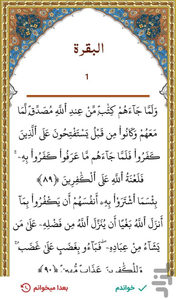 البقرة
1
وَلَمَّا جَآءَهُمْ كِتَٰبٌ مِّنْ عِندِ ٱللَّهِ مُصَدِّقٌ لِّمَا
مَعَهُمْ وَكَانُوا۟ مِن قَبْلُ يَسْتَفْتِحُونَ عَلَى ٱلَّذِينَ
كَفَرُوا۟ فَلَمَّا جَآءَهُم مَّا عَرَفُوا۟ كَفَرُوا۟ بِهِۦ ۚ
فَلَعْنَةُ ٱللَّهِ عَلَى ٱلْكَٰفِرِينَ ﴿٨٩﴾
بِئْسَمَا ٱشْتَرَوْا۟ بِهِۦٓ أَنفُسَهُمْ أَن يَكْفُرُوا۟ بِمَآ
أَنزَلَ ٱللَّهُ بَغْيًا أَن يُنَزِّلَ ٱللَّهُ مِن فَضْلِهِۦ عَلَىٰ مَن
يَشَآءُ مِنْ عِبَادِهِۦ ۖ فَبَآءُو بِغَضَبٍ عَلَىٰ غَضَبٍ ۚ
وَلِلْكَٰفِرِينَ عَذَابٌ مُّهِينٌ ﴿٩٠﴾
خواندم
بعدا میخوانم